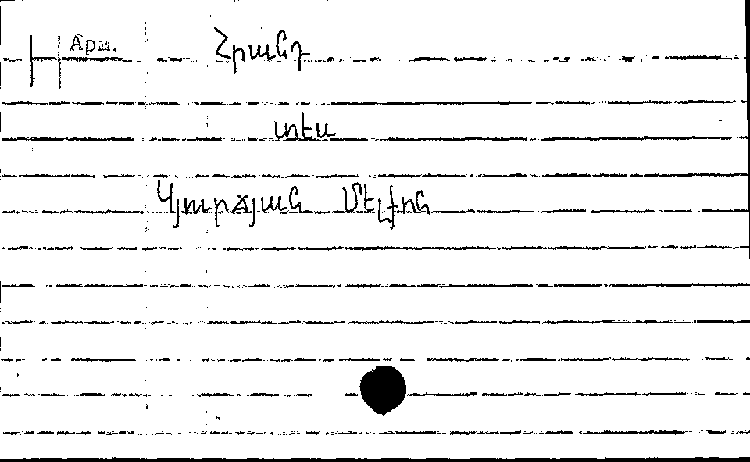 Հրանդ
տես
Կյուրճյան Մելքոն